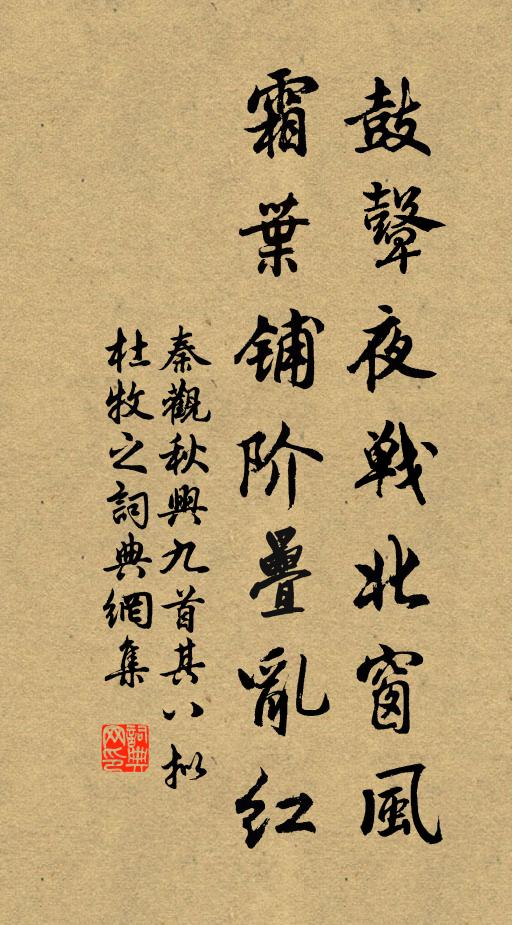 鼓聲夜戰北窗風
霜葉铺阶疊亂红
秦觀秋興九首其八拟
杜牧之詞典網集
詞典网印